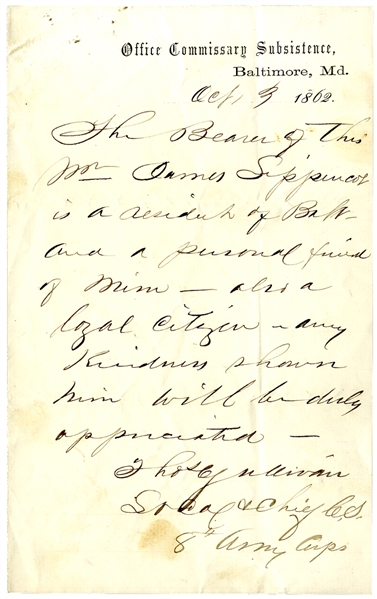 Office Commissary Subsistence,
Baltimore, Md.
Oct 3 1862.
The Bearer of This
Mr James Lippencot
is a resident of Balt-
and a personal friend
of Mine – also a
loyal citizen – any
Kindness shown
him will be duly
appreciated –
Thos Sullivan
& Chief C.S.
8th Army Corps